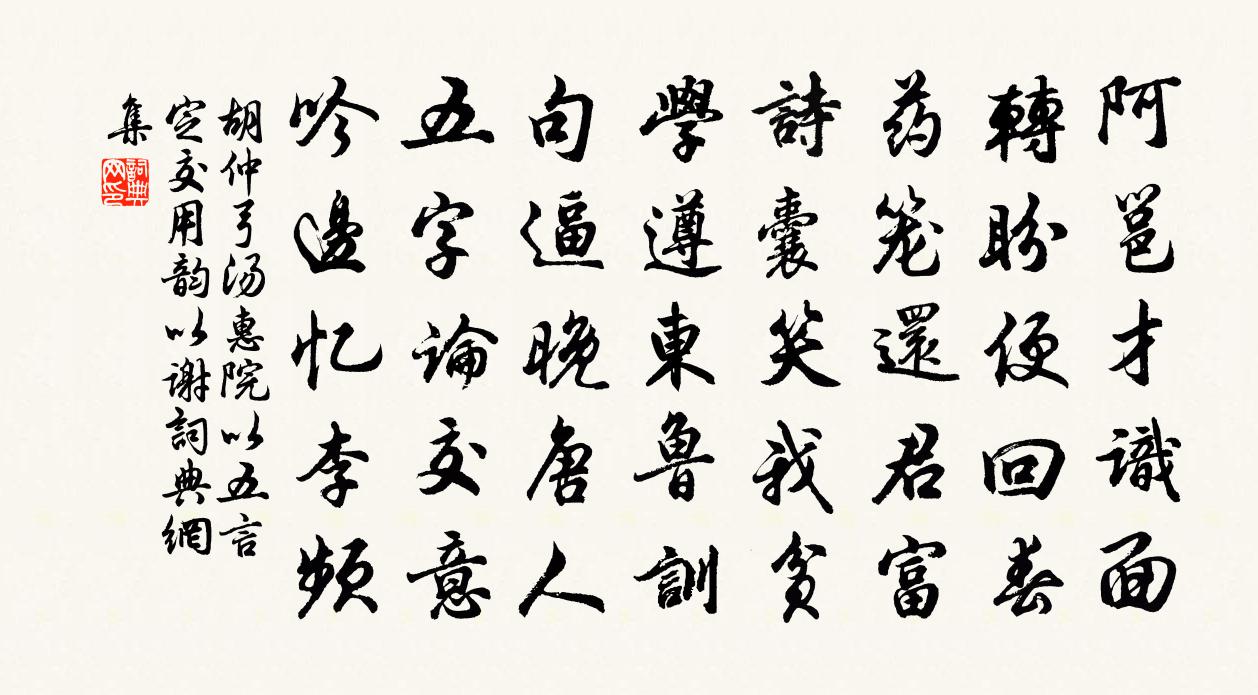 阿邕才識面
轉盼便回春
药笼還君富
詩囊笑我貧
學遵東魯訓
句逼晚唐人
五字論交意
吟邊忆李頻
胡仲弓汤惠院以五言
定交用韵以谢詞典網
集
詞典
网印